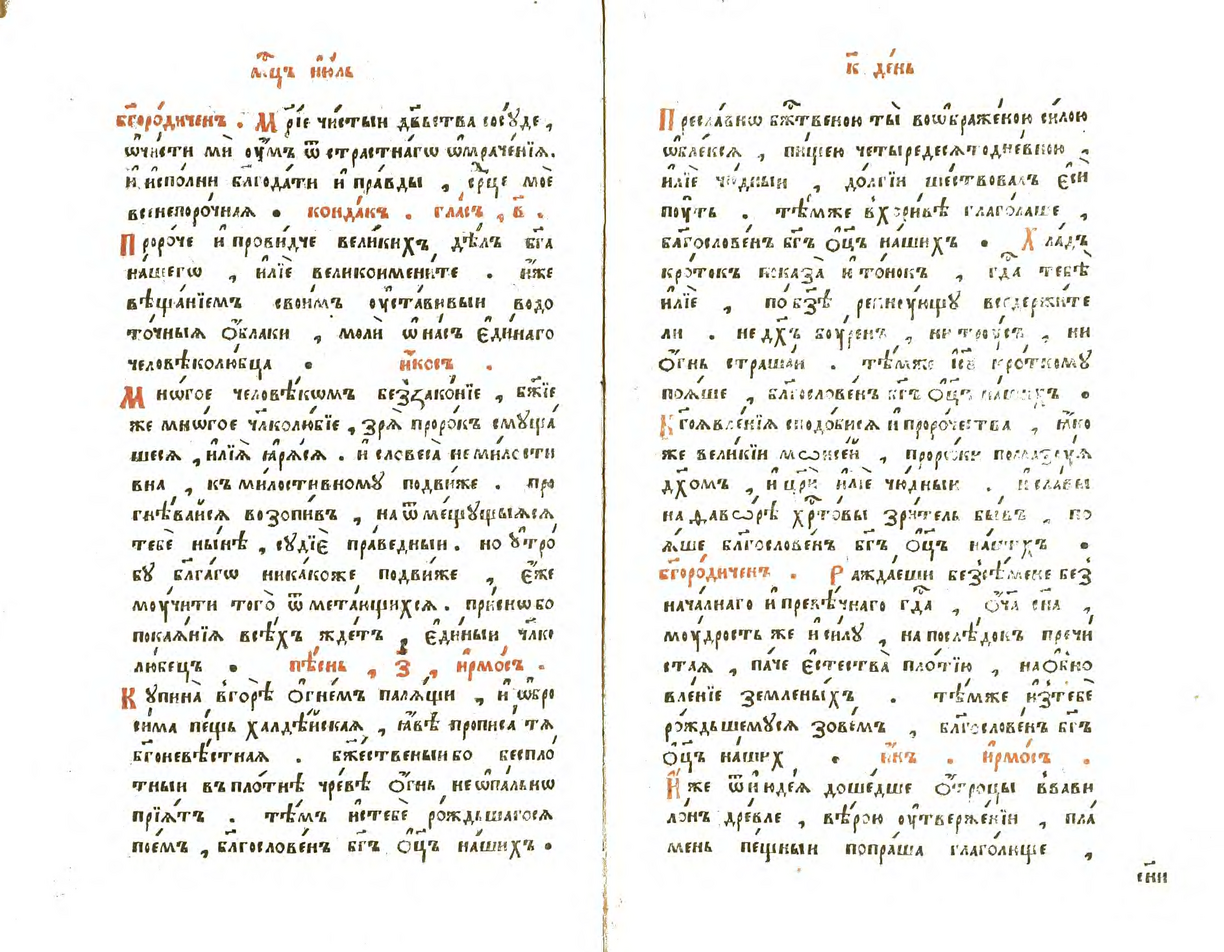 мⷭ҇цъ і҆ю́ль
бг҃оро́диченъ . Мр҃і́е чи́стыи дв҃ьства сосꙋ́де ,
ѡ҆чи́сти мѝ оу҆́мъ ѿ стра́стнагѡ ѡ҆мраче́нїѧ.
и҆ и҆спо́лни бл҃года́ти и҆ пра́вды , ср҃це моѐ
всенепоро́чнаѧ . конда́къ . гла́съ , в҃ .
П ророче и҆ прови́дче вели́кихъ дѣ́лъ бг҃а
на́шегѡ , и҆лїѐ великоимени́те . и҆́же
вѣща́нїемъ свои́мъ оу҆ста́вивыи водо
то́чныѧ ѻ҆́блаки , молѝ ѡ҆ на́съ є҆ди́наго
человѣколю́бца . и҆́косъ .
М но́гое человѣ́кѡмъ беззако́нїе , бж҃їе
же мно́гое чл҃колю́бїе , зрѧ̀ проро́къ смꙋща́
шесѧ , и҆лїѧ̀ ꙗ҆рѧ́сѧ . и҆ словеса̀ неми́лости
вна , къ ми́лостивномꙋ подви́же . про
гнѣ́вайсѧ возопи́въ , на ѿмещꙋ́щыѧсѧ
тебѐ ны́нѣ , сꙋдїѐ пра́ведныи . но ᲂу҆тро́
бꙋ бл҃га́гѡ ника́коже подви́же , є҆́же
моу́чити того̀ ѿмета́ющихсѧ . при́снѡ бо
покаѧ́нїѧ всѣ́хъ жде́тъ , є҆ди́ныи чл҃ко
лю́бецъ . пѣ́снь , з҃ , і҆рмо́съ .
К упина̀ вгорѣ̀ ѻ҆гне́мъ палѧ́щи , и҆ ѡ҆бро
си́ма пе́щь халдѣ́йскаѧ , ꙗ҆́вѣ прописа́ тѧ
бг҃оневѣ́стнаѧ . бж҃е́ственыи бо беспло́
тныи въ пло́тнѣ чре́вѣ ѻ҆́гнь , неѡ҆па́льнѡ
прїѧ́тъ . тѣ́мъ и҆стебѐ ро́ждьшагосѧ
пое́мъ , бл҃гослове́нъ бг҃ъ ѻ҆ц҃ъ на́шихъ .
к҃ де́нь
П ресла́внѡ бж҃твеною ты̀ воѡ҆браже́ною си́лою
ѡ҆бле́ксѧ , пи́щею четыредесѧтодне́вною ,
и҆лїѐ чю́дныи , до́лгїи ше́ствовалъ є҆сѝ
поу́ть . тѣ́мже вхори́вѣ глаго́лаше ,
бл҃гослове́нъ бг҃ъ ѻ҆ц҃ъ на́шихъ . Х ла́дъ
кро́токъ показа̀ и҆ то́нокъ , гд҃а тебѣ̀
и҆лїѐ , по бз҃ѣ ревнꙋ́ющꙋ вседержи́те
ли . не дх҃ъ боу́ренъ , ни троу́съ , ни
ѻ҆́гнь стра́шаи . тѣ́мже і҆с҃ѣ кро́ткомꙋ
поѧ́ше , бл҃гослове́нъ бг҃ъ ѻ҆ц҃ъ на́шихъ .
Б гоѧвле́нїѧ сподо́бисѧ и҆ проро́чества , ꙗ҆́ко
же вели́кїи мѡисе́й , проро́ки помазꙋ́ѧ
дх҃омъ , и҆ цр҃ѝ и҆лїѐ чю́дныи . и҆ сла́вы
на ѳ҆аво́рѣ хр҃то́вы зри́тель бы́въ , по
ѧ́ше бл҃гослове́нъ бг҃ъ ѻ҆ц҃ъ на́шихъ .
бг҃оро́диченъ . Р ажда́еши безсѣ́мене без
нача́лнаго и҆ преве́чнаго гд҃а , ѻ҆́ч҃а сн҃а ,
моу́дрость же и҆ си́лꙋ , на послѣ́докъ пречи́
стаѧ , па́че є҆стества̀ пло́тїю , на ѻ҆бно
вле́нїе земле́ныхъ . тѣ́мже и҆стебѐ
ро́ждьшемꙋсѧ зове́мъ , бл҃гослове́нъ бг҃ъ
ѻ҆ц҃ъ на́шихъ . и҆́нъ . і҆рмо́съ .
И҆ же ѿ и҆юде́ѧ доше́дше ѻ҆́троцы вва́ви
ло́нъ дре́вле , вѣ́рою оу҆твержє́нїи , пла́
мень пе́щныи попра́ша глаго́люще ,
сни